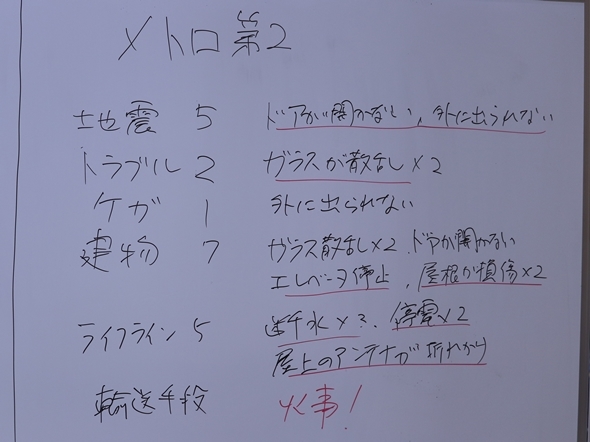 メトロ第2
地震 5 ドアが開かない, 外に出られない
トラブル 2 ガラスが散乱し×2
ケガ 1 外に出られない
建物 7 ガラス散乱×2 ドアが開かない
エレベータ停止, 屋根が損傷×2
ライフライン 5 水×3, 停電×2
屋上のアンテナが折れかかり
輸送手段 火事!